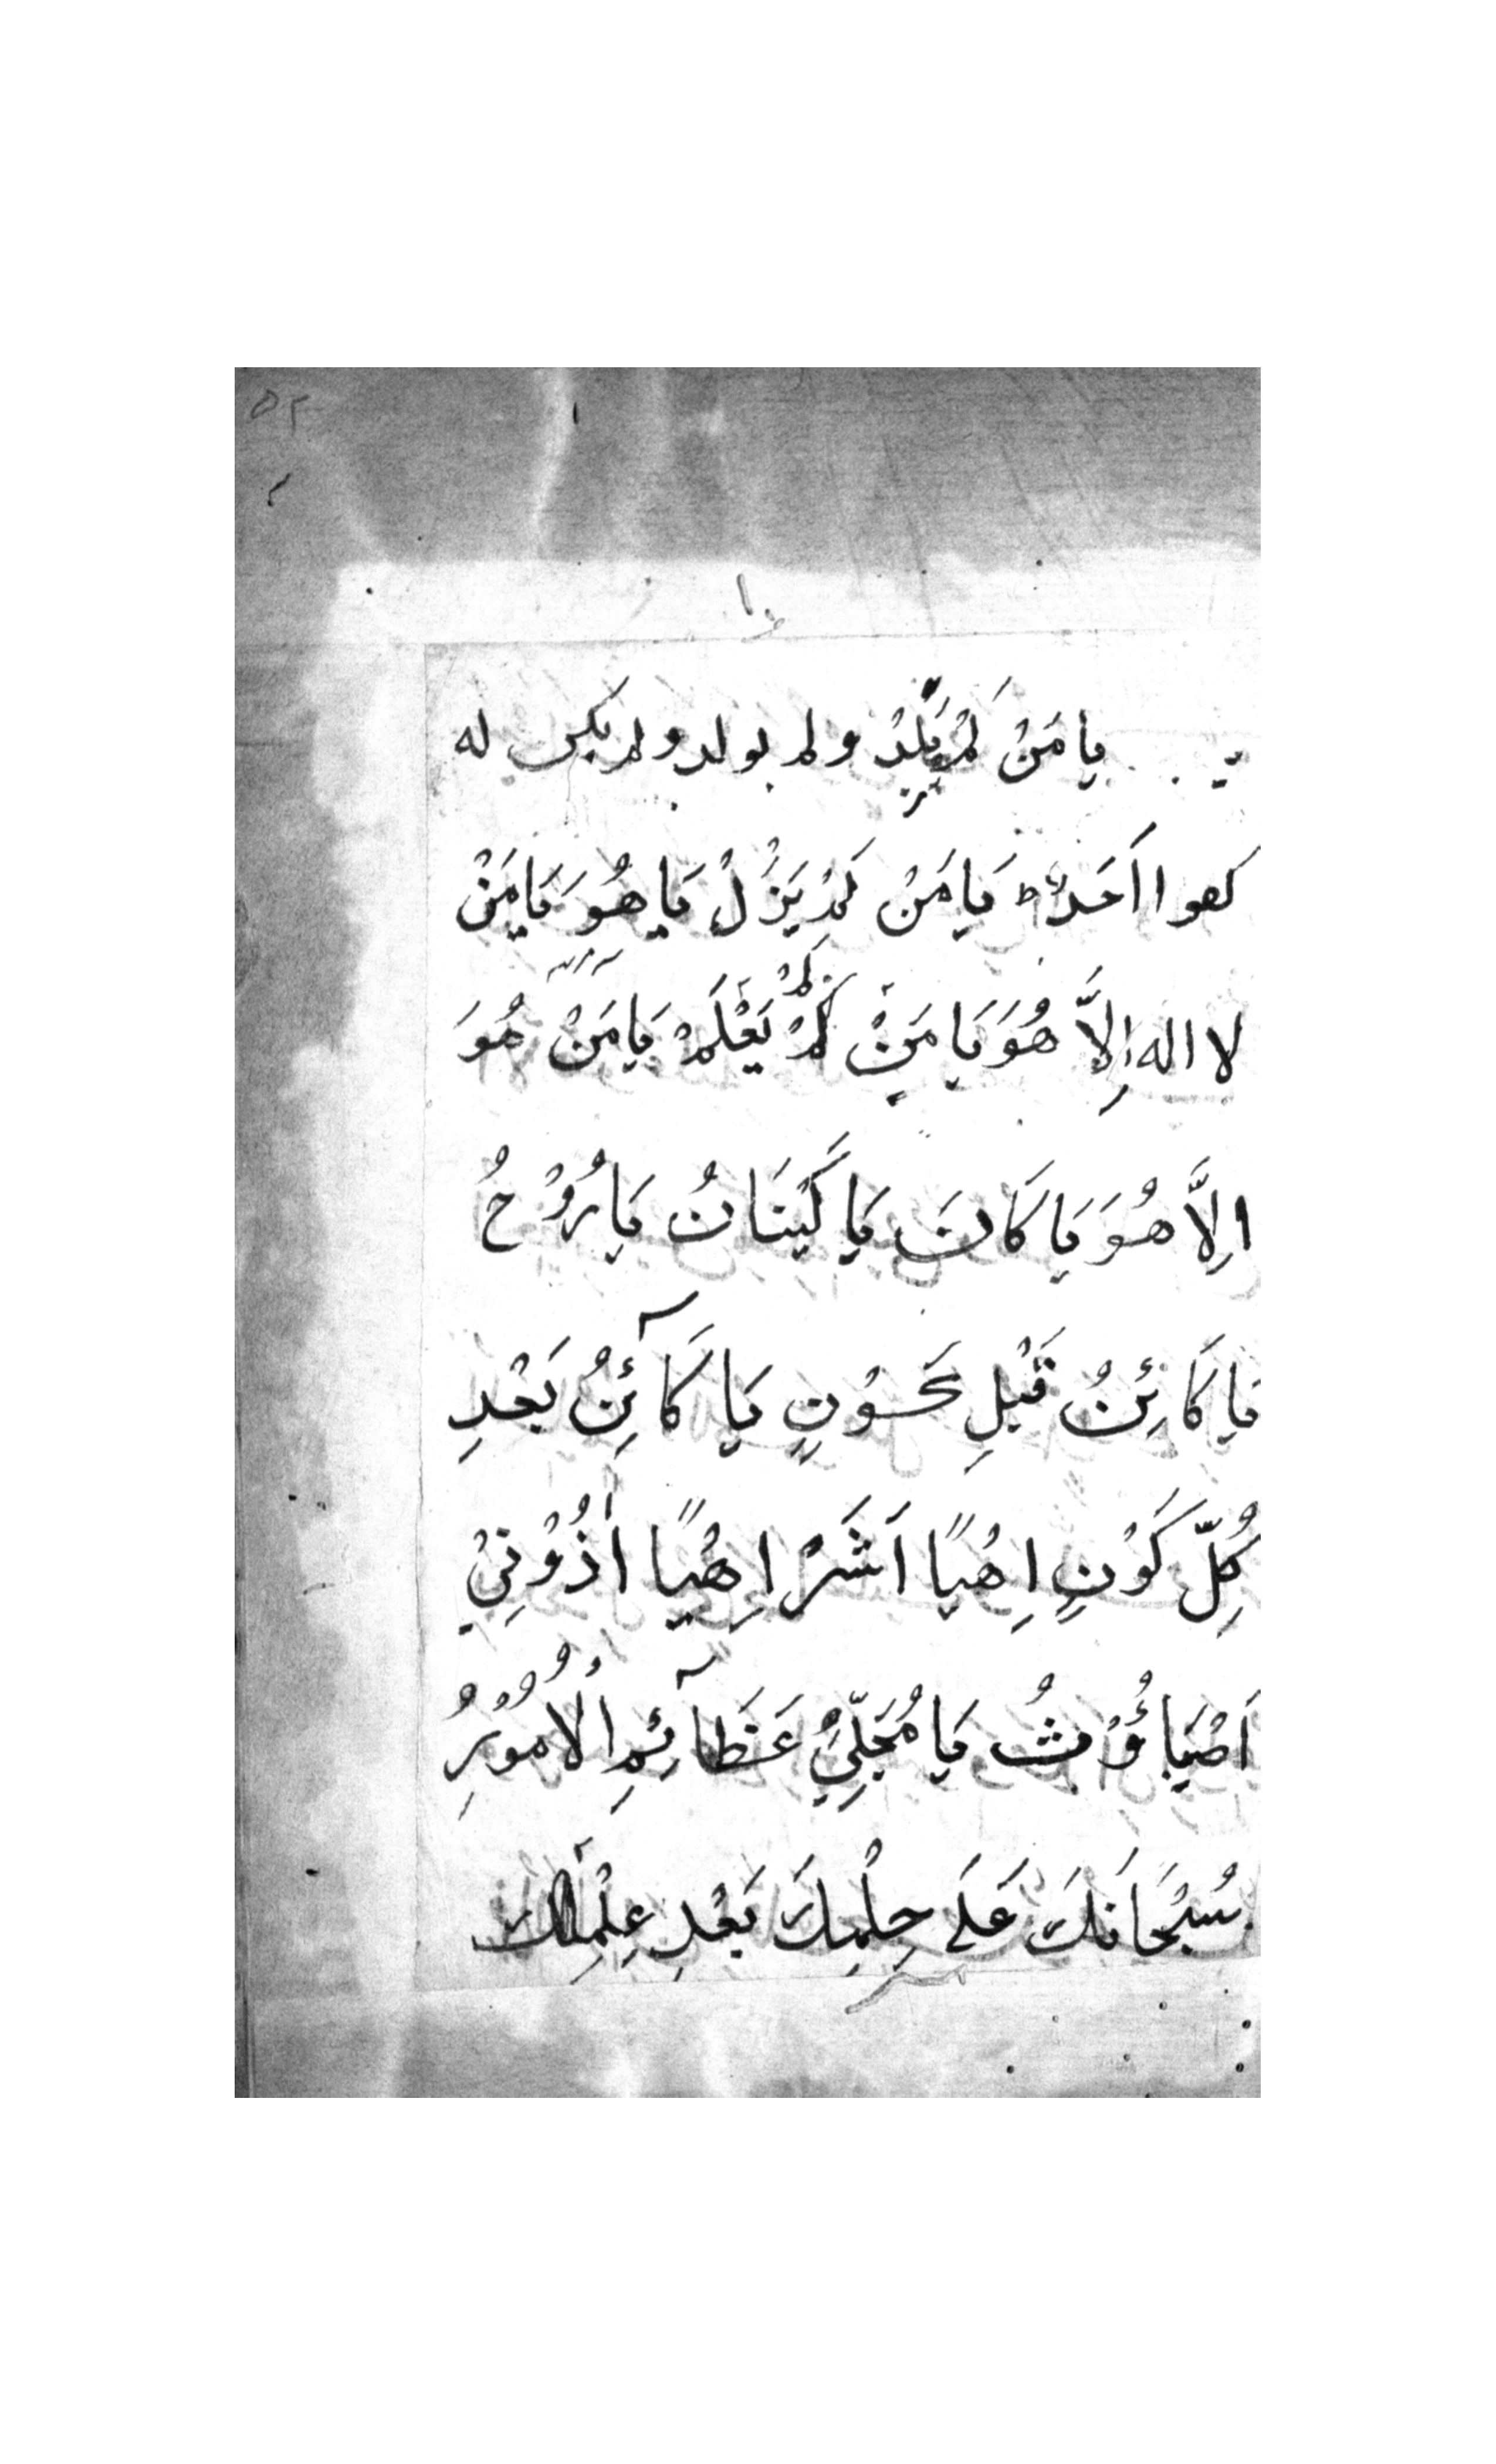 ٥٢
يَا مَنْ لَمْ يَلِدْ ولم يولد ولم يكن له
كفوا اَحَدٌ ط يَا مَنْ لَمْ يَزُلْ يَا هُوَ يَا مَنْ
لا اله اِلاَّ هُوَ يَا مَنْ لَمْ يَعْلَمْ يَا مَنْ هُوَ
اِلاَّ هُوَ يَا كَانَ يَا كَيْنَانُ يَا رُوْحُ
يَا كَائِنُ قَبْلِ كَوْنٍ يَا كَآئِنُ بَعْدِ
كُلِّ كَوْنٍ اِهْيًا اَشَرْ اِهْيًا أَذُوْنِيْ
اَصْبَاؤُثُ يَا مُجَلِّيْ عَظَآئِمِ الْاُمُوْرِ
سُبْحَانَكَ عَلَى حِلْمِكَ بَعْدِ عِلْمِكَ